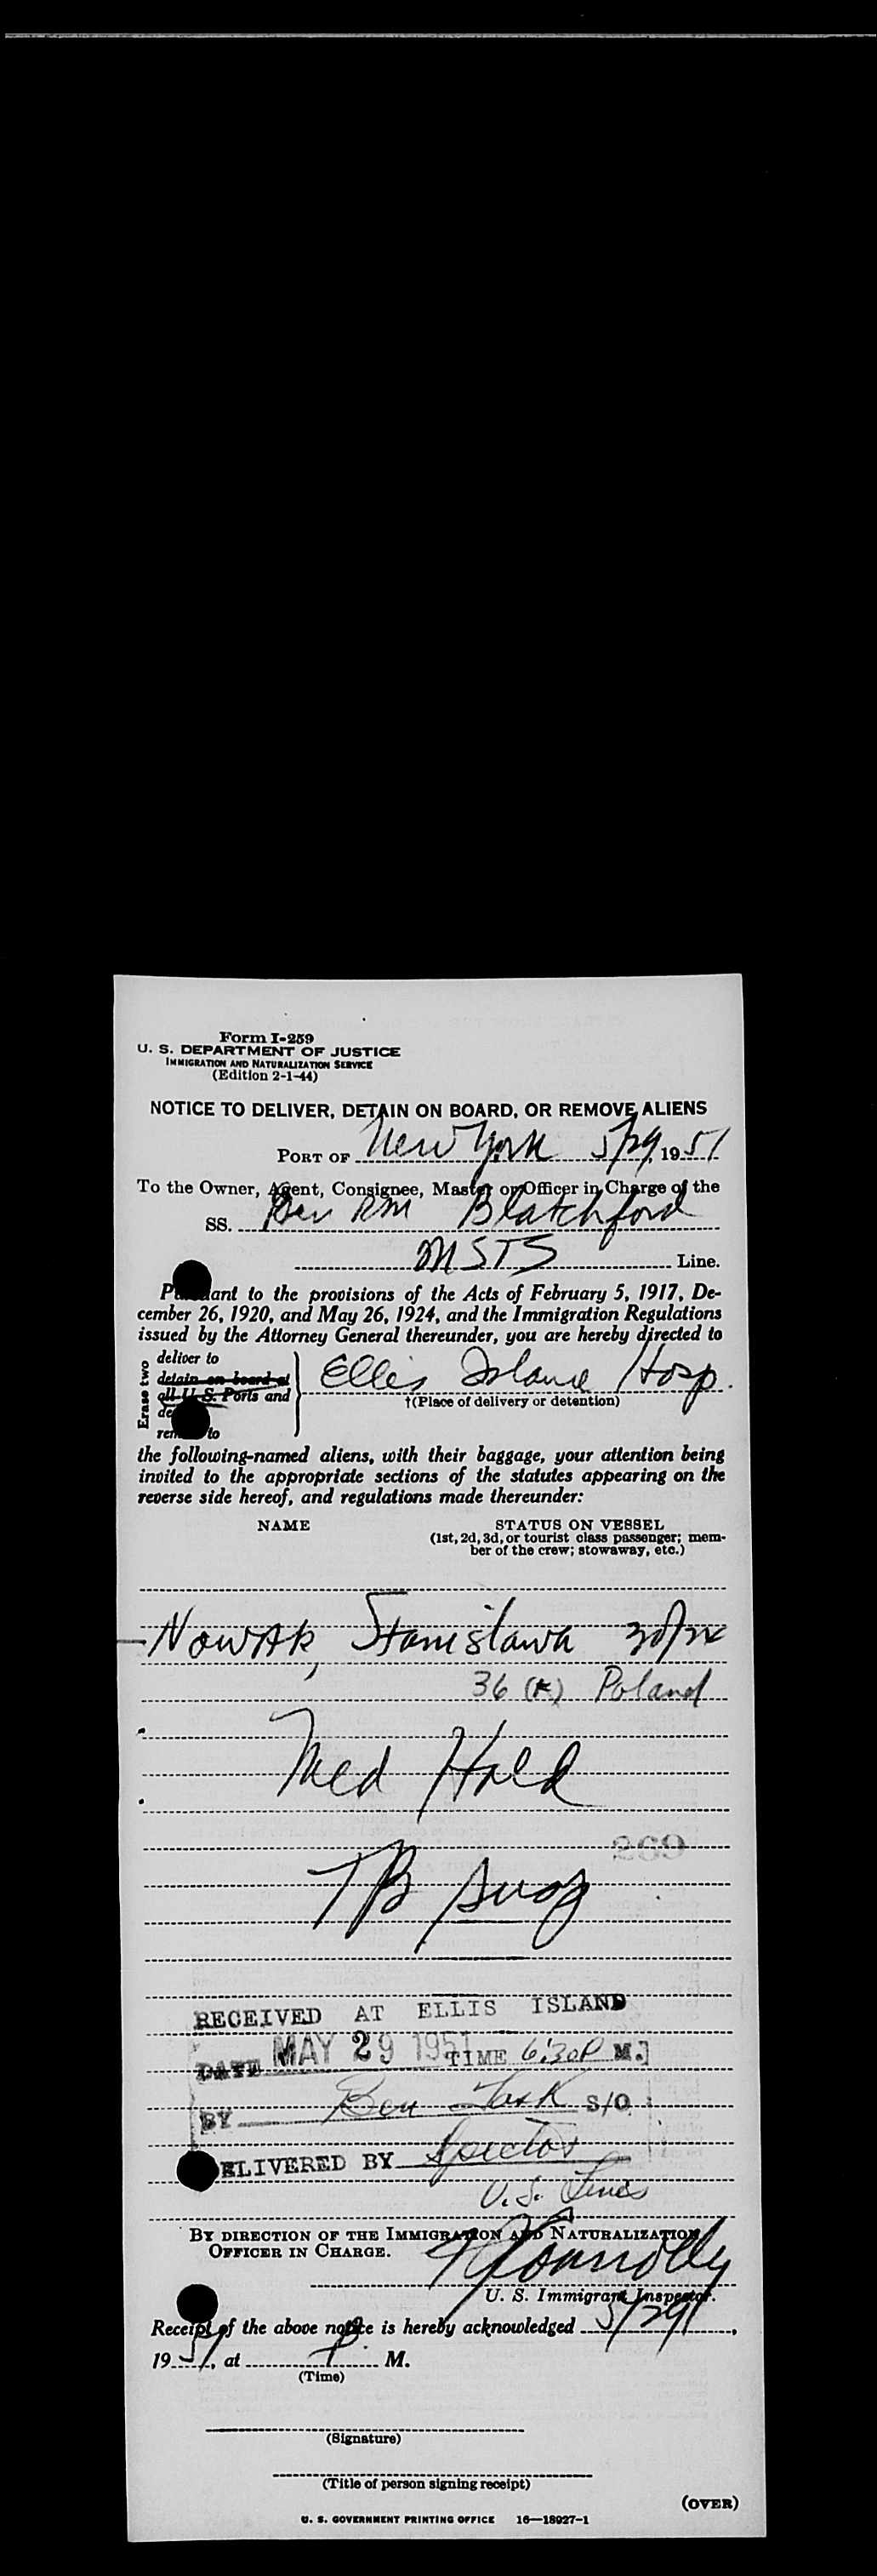 Form I-259
U. S. DEPARTMENT OF JUSTICE
IMMIGRATION AND NATURALIZATION SERVICE
(Edition 2-1-44)
NOTICE TO DELIVER, DETAIN ON BOARD, OR REMOVE ALIENS
PORT OF New York 5/29, 1951
To the Owner, Agent, Consignee, Master or Officer in Charge of the
SS. Gen RM Blatchford
MSTS Line.
Pursuant to the provisions of the Acts of February 5, 1917, De-
cember 26, 1920, and May 26, 1924, and the Immigration Regulations
issued by the Attorney General thereunder, you are hereby directed to
Erase two
deliver to
detain on board at
all U. S. Ports and
Ellis Island Hosp.
†(Place of delivery or detention)
to
the following-named aliens, with their baggage, your attention being
invited to the appropriate sections of the statutes appearing on the
reverse side hereof, and regulations made thereunder:
NAME STATUS ON VESSEL
(1st, 2d, 3d, or tourist class passenger; mem-
ber of the crew; stowaway, etc.)
Nowak, Stanislawa
36 Poland
Med Hold
269
TB susp
RECEIVED AT ELLIS ISLAND
DATE MAY 29 1951 TIME 6:30P M.
BY Ben S/O
DELIVERED BY Spector
U.S. Lines
BY DIRECTION OF THE IMMIGRATION AND NATURALIZATION
OFFICER IN CHARGE.
Connolly
U. S. Immigrant Inspector.
Receipt of the above notice is hereby acknowledged 5/29,
1951, at P. M.
(Time)
(Signature)
(Title of person signing receipt)
(OVER)
U. S. GOVERNMENT PRINTING OFFICE 16—18027-1